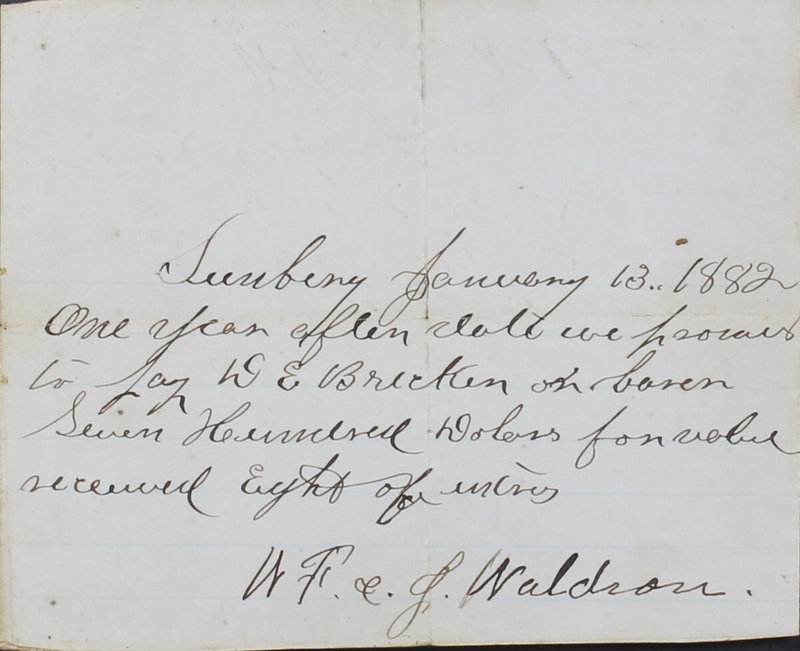 Sunbery January 13.. 1882
One year after date we promis
to pay D E Bricken or barer
Seven Hundred Dolars for value
received Eight
W F. & J. Waldron.